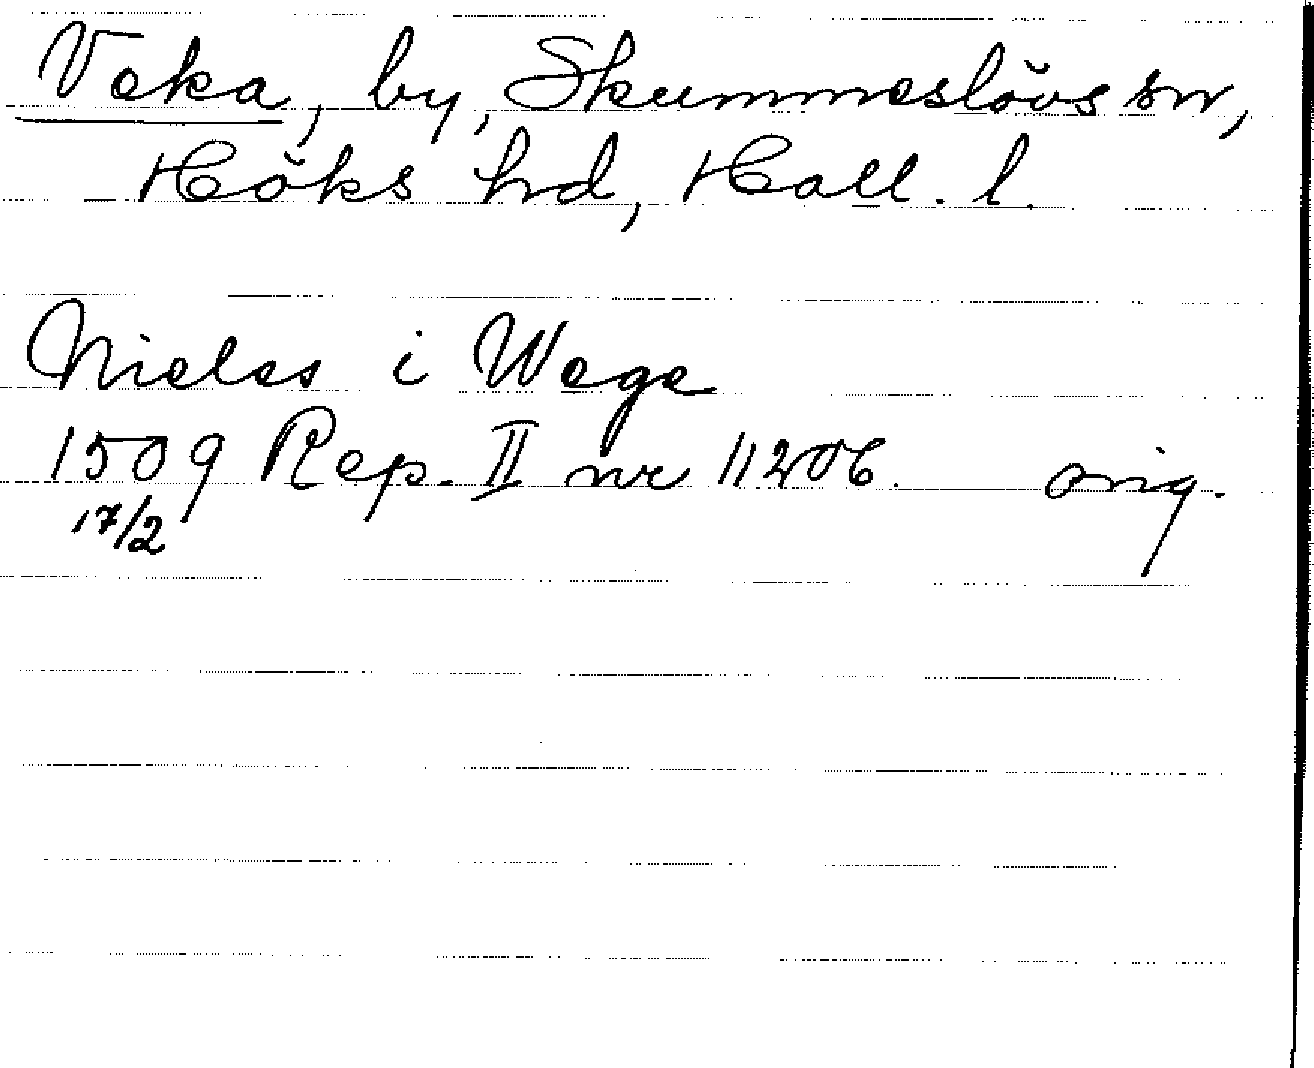 Veka, by, Skummeslövs sn,
Höks hd, Hall. l.
Nieles i Wege
1509 Rep. II nr 11206. orig.
17/2